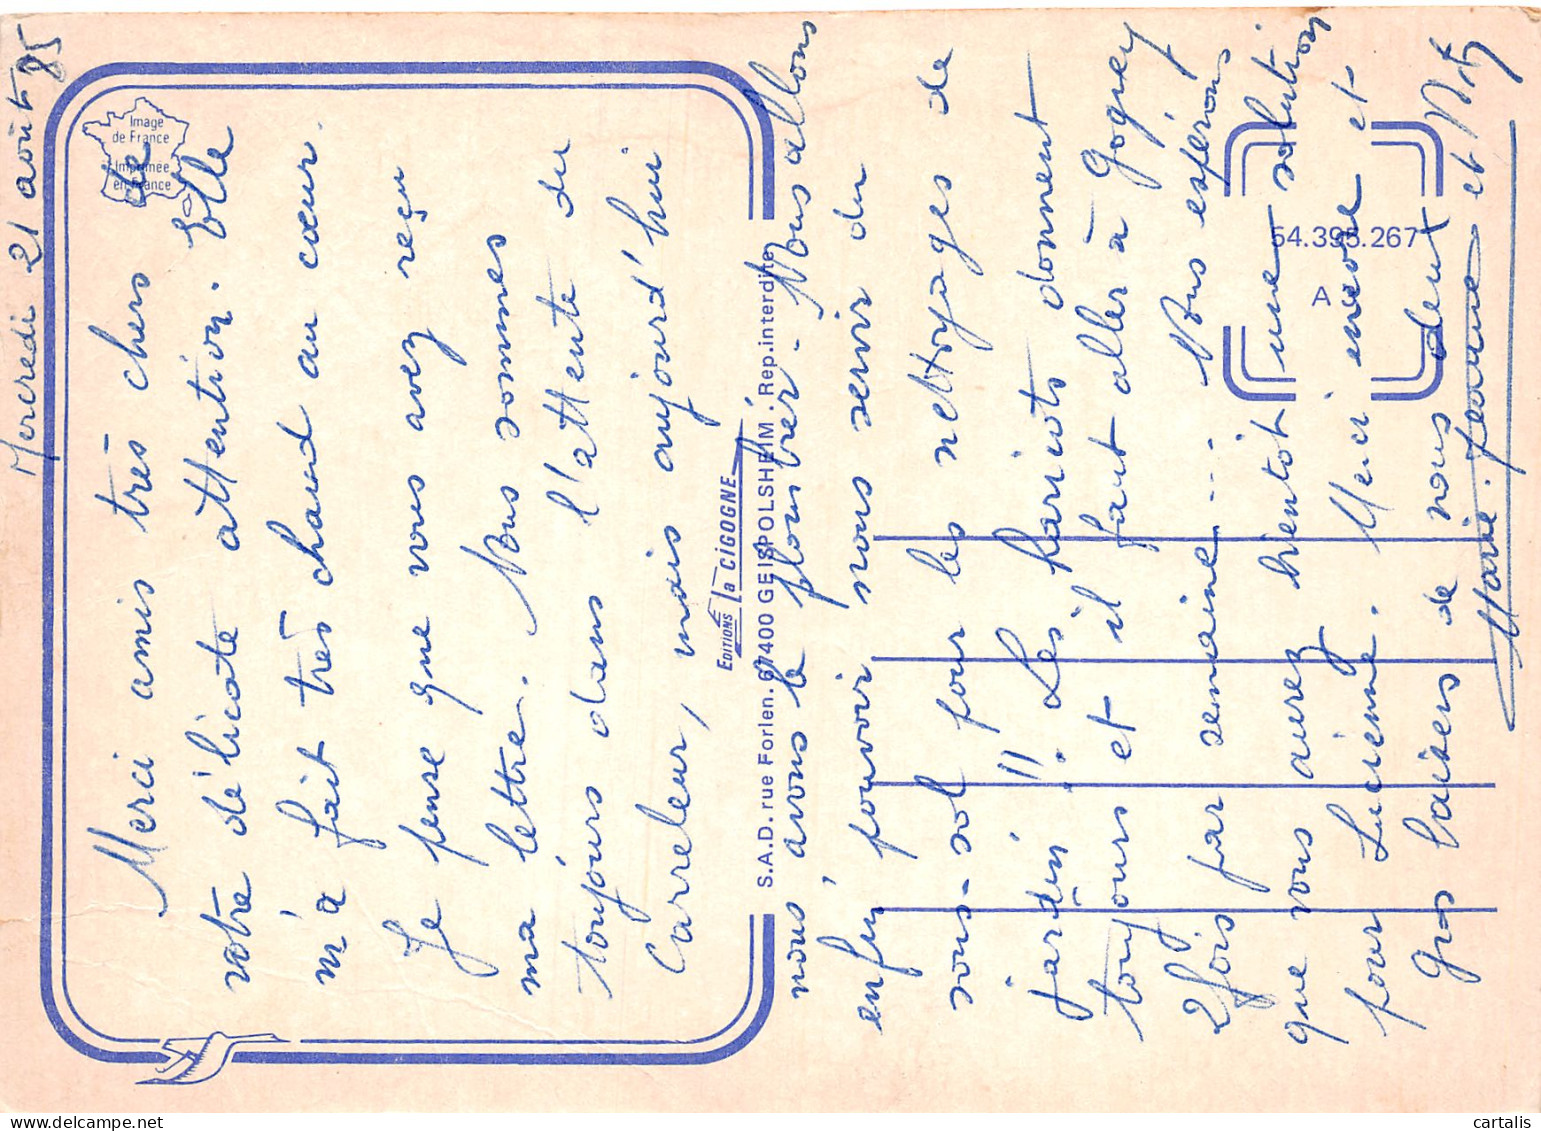 Mercredi 21 août 85
Merci amis très chers de
votre délicate attention. Elle
m'a fait très chaud au cœur.
Je pense que vous avez reçu
ma lettre. Nous sommes
toujours dans l'attente du
Carreleur, mais aujourd'hui
nous avons le plombier - Nous allons
enfin pouvoir nous servir du
sous-sol pour les nettoyages de
jardin !! Les haricots donnent
toujours et il faut aller à Goguey
2 fois par semaine... Nous espérons
que vous aurez bientôt une solution
pour Lucienne. Merci encore et
Gros baisers de nous deux
Marie-Jeanne et
Image
de France
Imprimée
en France
EDITIONS la CIGOGNE
S.A.D. rue Forlen. 67400 GEISPOLSHEIM. Rep. interdite
54.395.267
A
cartalis